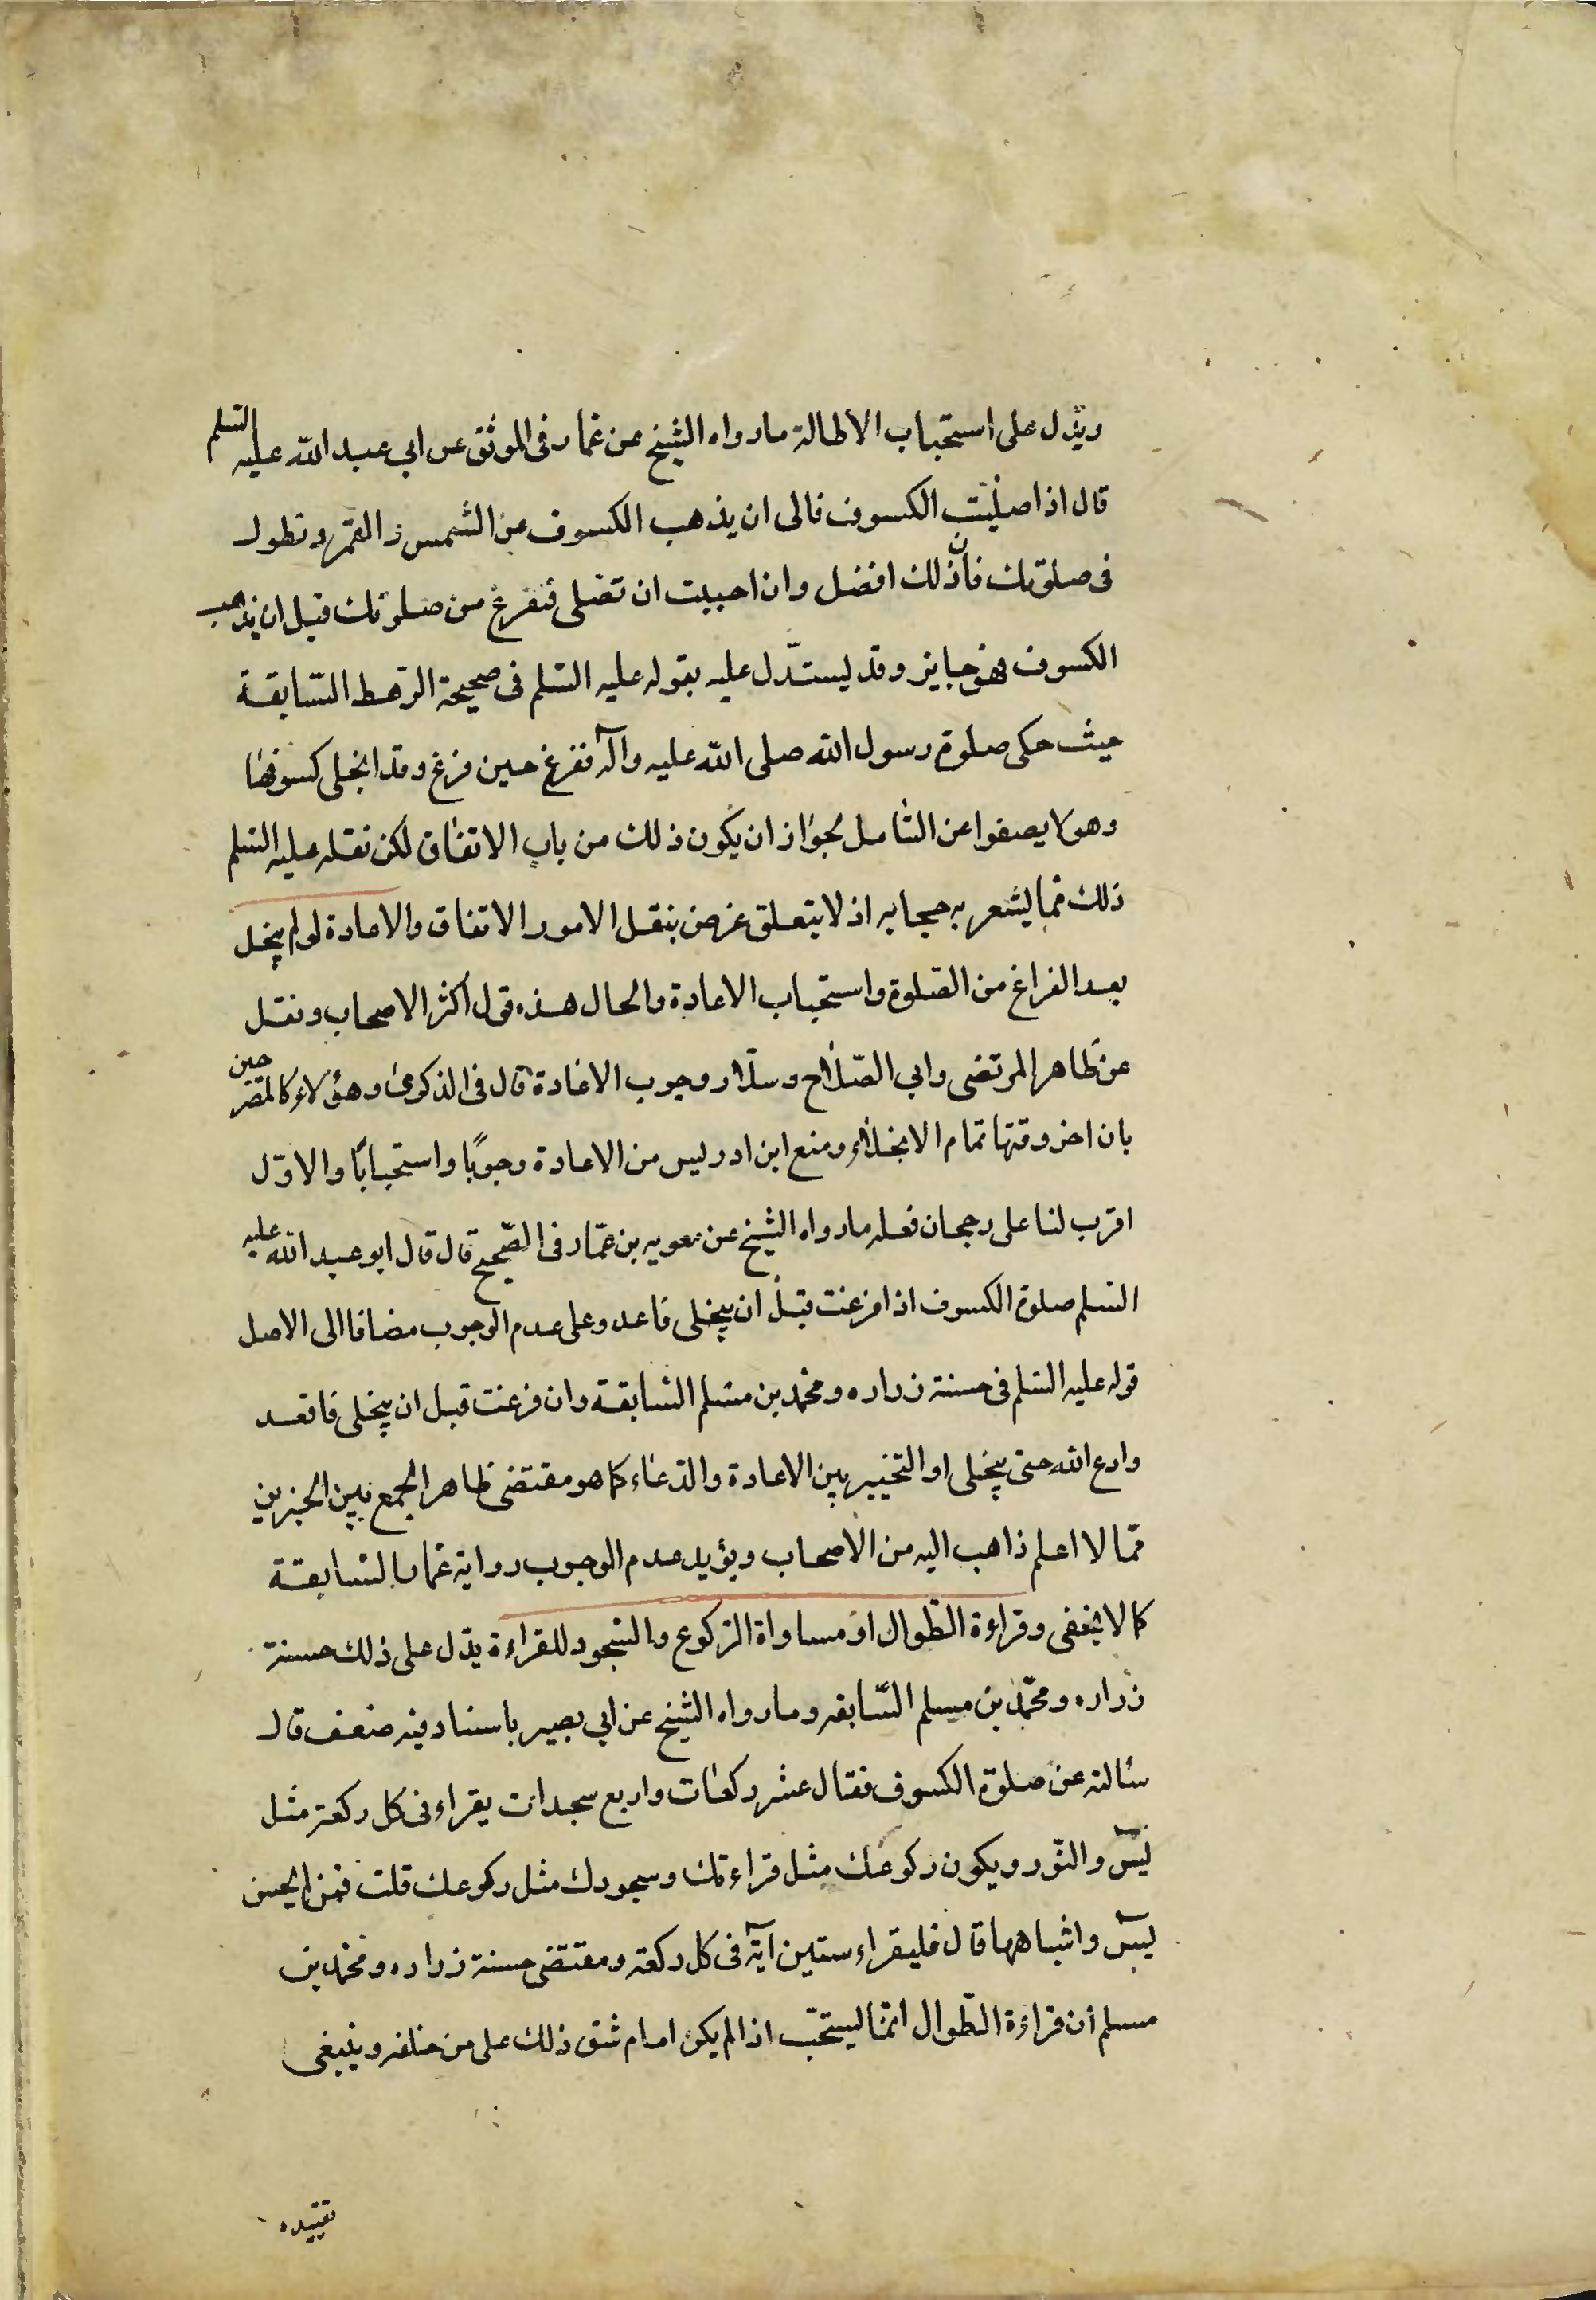 ويدل على استحباب الاطالة مارواه الشيخ عن عمار فى الموثق عن ابي عبد الله عليه السلم
قال اذا صليت الكسوف فالى ان يذهب الكسوف عن الشمس و القمر و تطول
فى صلوتك فان ذلك افضل وان احببت ان تصلى فتفرغ من صلوتك قبل ان يذهب
الكسوف فهو جايز وقد يستدل عليه بقوله عليه السلم فى صحيحة الرهط السابقة
حيث حكى صلوة رسول الله صلى الله عليه وآله ففرغ حين فرغ وقد انجلى كسوفها
وهو لا يصفوا عن التامل لجواز ان يكون ذلك من باب الاتفاق لكن نقله عليه السلم
ذلك مما يشعر به حجابه اذ لا يتعلق غرض بنقل الامور الاتفاق والاعادة لو لم ينجل
بعد الفراغ من الصلوة واستحباب الاعادة والحال هذه قول اكثر الاصحاب ونقل
عن ظاهر المرتضى وابي الصلاح وسلار وجوب الاعادة قال فى الذكرى وهؤلاء كالمصرحين
بان اخر وقتها تمام الانجلاء ومنع ابن ادريس من الاعادة وجوبًا واستحبابًا والاوّل
اقرب لنا على رجحان فعله مارواه الشيخ عن معويه بن عمّار فى الصّحيح قال قال ابو عبد الله عليه
السلم صلوة الكسوف اذا فرغت قبل ان ينجلى فاعد وعلى عدم الوجوب مضافا الى الاصل
قوله عليه السلم فى حسنة زراره ومحمد بن مسلم السابقة وان فرغت قبل ان ينجلى فاقعد
وادع الله حتى ينجلى او التخيير بين الاعادة والدعاء كما هو مقتضى ظاهر الجمع بين الخبرين
ممّا لا اعلم ذاهب اليه من الاصحاب ويؤيد عدم الوجوب رواية عمار السابقة
كما لا يخفى وقراءة الطوال او مساواة الركوع والسجود للقراءة يدل على ذلك حسنة
زراره ومحمّد بن مسلم السّابقه ومارواه الشيخ عن ابي بصير باسناد فيه ضعف قال
سألته عن صلوة الكسوف فقال عشر ركعات واربع سجدات يقراء فى كل ركعة مثل
يس والنّور ويكون ركوعك مثل قراءتك وسجودك مثل ركوعك قلت فمن لم يحسن
يس واشباهها قال فليقراء ستين آية فى كل ركعة ومقتضى حسنة زراره ومحمد بن
مسلم ان قراءة الطّوال انما يستحبّ اذا لم يكن امام شق ذلك على من خلفه وينبغى
تقييده